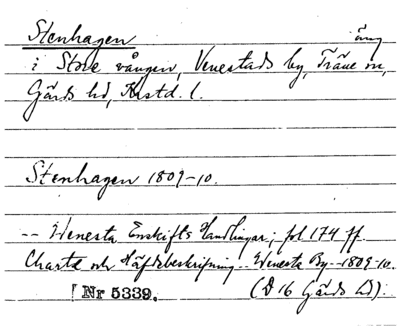 Stenhagen äng
i Store vången, Venestads by, Träne sn,
Gärds hd, Krstd. l.
Stenhagen 1809-10.
-- Wenesta Enskifts Handlingar; fol 174 ff.
Charta och Häfdebeskrifning -- Wenesta By -- 1809-10.
Nr 5339. (D 16 Gärds hd).